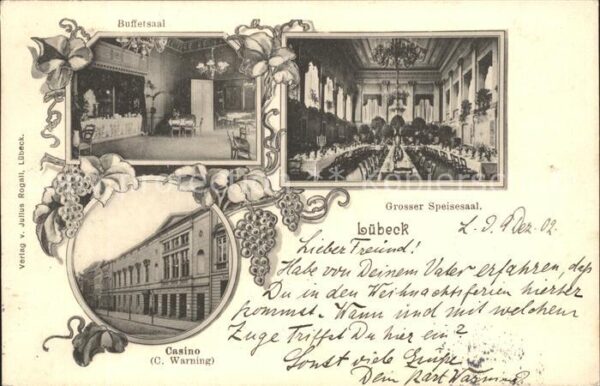 Buffetsaal
Verlag v. Julius Rogall, Lübeck.
Grosser Speisesaal.
Lübeck
L. d. 9 Dez. 02.
Lieber Freund!
Habe von Deinem Vater erfahren, daß
Du in den Weihnachtsferien hierher
kommst. Wann und mit welchem
Zuge triffst Du hier ein?
Sonst viele Grüße
Dein Karl Warning
Casino
(C. Warning)